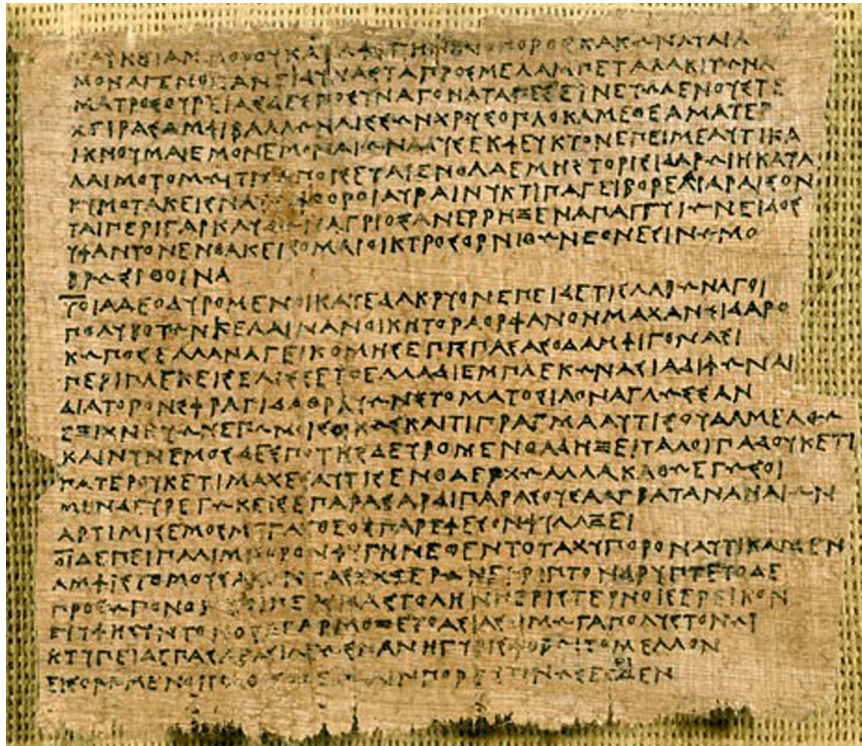 ΦΥΓΗΝ ΠΟΡΟΣΚΑΚΩΝ
ΜΟΝΑΓΕΝΟΙΤΑΝ ΠΡΟΣΜΕΛΑΜΠΕΤΑΛΑΚΙΤΩΝΑ
ΜΑΤΡΟΣΟΥΡΕΙΑΣΔΕΣΠΟΣΥΝΑΓΟΝΑΤΑΠΕΣΕΙΝΕΥΩΛΕΝΟΥΣΤΕ
ΧΕΙΡΑΣΑΜΦΙΒΑΛΛΩΝΛΙΣΣΩΝΧΡΥΣΟΠΛΟΚΑΜΕΘΕΑΜΑΤΕΡ
ΙΚΝΟΥΜΑΙΕΜΟΝΕΜΟΝΑΙΩΝΑΔΥΣΕΚΦΕΥΚΤΟΝΕΠΕΙΜΕΑΥΤΙΚΑ
ΛΑΙΜΟΤΟΜΩΙΤΙΣΑΠΟΙΣΕΤΑΙΕΝΘΑΔΕΜΗΣΤΟΡΙΣΙΔΑΡΩΙΗΚΑΤΑ
ΚΥΜΟΤΑΚΕΙΣΝΑΥΣΙΦΘΟΡΟΙΑΥΡΑΙΝΥΚΤΙΠΑΓΕΙΒΟΡΕΑΙΔΙΑΡΑΙΣΟΝ
ΤΑΙΠΕΡΙΓΑΡΚΛΥΔΩΝΑΓΡΙΟΣΑΝΕΡΡΗΞΕΝΑΠΑΝΓΥΙΩΝΕΙΔΟΣ
ΥΦΑΝΤΟΝΕΝΘΑΚΕΙΣΟΜΑΙΟΙΚΤΡΟΣΟΡΝΙΘΩΝΕΘΝΕΣΙΝΩΜΟ
ΒΡΩΣΙΘΟΙΝΑ
ΤΟΙΑΔΕΟΔΥΡΟΜΕΝΟΙΚΑΤΕΔΑΚΡΥΟΝΕΠΕΙΔΕΤΙΣΛΑΒΩΝΑΓΟΙ
ΠΟΛΥΒΟΤΩΝΚΕΛΑΙΝΑΝΟΙΚΗΤΟΡΑΟΡΦΑΝΟΝΜΑΧΑΝΣΙΔΑΡΟ
ΚΩΠΟΣΕΛΛΑΝΑΓΕΙΚΟΜΗΣΕΠΙΣΠΑΣΑΣΟΔΑΜΦΙΓΟΝΑΣΙ
ΠΕΡΙΠΛΕΚΕΙΣΕΛΙΣΣΕΤΟΕΛΛΑΔΙΕΜΠΛΕΚΩΝΑΣΙΑΔΙΦΩΝΑΙ
ΔΙΑΤΟΡΟΝΣΦΡΑΓΙΔΑΘΡΑΥΩΝΣΤΟΜΑΤΟΣΙΑΟΝΑΓΛΩΣΣΑΝ
ΕΞΙΧΝΕΥΩΝΕΓΩΜΟΙΣΟΙΚΩΣΚΑΙΤΙΠΡΑΓΜΑΑΥΤΙΣΟΥΔΑΜΕΛΘΩ
ΚΑΙΝΥΝΕΜΟΣΔΕΣΠΟΤΗΣΔΕΥΡΟΜΕΝΘΑΔΗΞΕΙΤΑΛΟΙΠΑΔΟΥΚΕΤΙ
ΠΑΤΕΡΟΥΚΕΤΙΜΑΧΕΣΑΥΤΙΣΕΝΘΑΔΕΡΧΩΑΛΛΑΚΑΘΩΕΓΩΣΟΙ
ΜΕΝΔΕΥΡΕΓΩΚΕΙΣΕΠΑΡΑΣΑΡΔΙΠΑΡΑΣΟΥΣΑΑΓΒΑΤΑΝΑΝΑΙΩΝ
ΑΡΤΙΜΙΣΕΜΟΣΜΕΓΑΣΘΕΟΣΠΑΡΕΦΕΣΟΝΦΥΛΑΞΕΙ
ΟΙΔΕΠΕΙΠΑΛΙΜΠΟΡΟΝΦΥΓΗΝΕΘΕΝΤΟΤΑΧΥΠΟΡΟΝΑΥΤΙΚΑΜΕΝ
ΑΜΦΙΣΤΟΜΟΥΣΑΚΟΝΤΑΣΕΚΧΕΡΩΝΕΡΙΠΤΟΝΔΡΥΠΤΕΤΟΔΕ
ΠΡΟΣΩΠΟΝΟΝΥΞΙΠΕΡΣΙΔΑΣΤΟΛΗΝΠΕΡΙΣΤΕΡΝΟΙΣΕΡΕΙΚΟΝ
ΕΥΥΦΗΣΥΝΤΟΝΟΣΔΑΡΜΟΖΕΤΟΑΣΙΑΣΟΙΜΩΓΑΠΟΛΥΣΤΟΝΩΙ
ΚΤΥΠΕΙΔΕΠΑΣΑΒΑΣΙΛΕΩΣΠΑΝΗΓΥΡΙΣΦΟΒΩΙΤΟΜΕΛΛΟΝ
ΕΙΣΟΡΩΜΕΝΟΙΠΑΘΟΣΟ